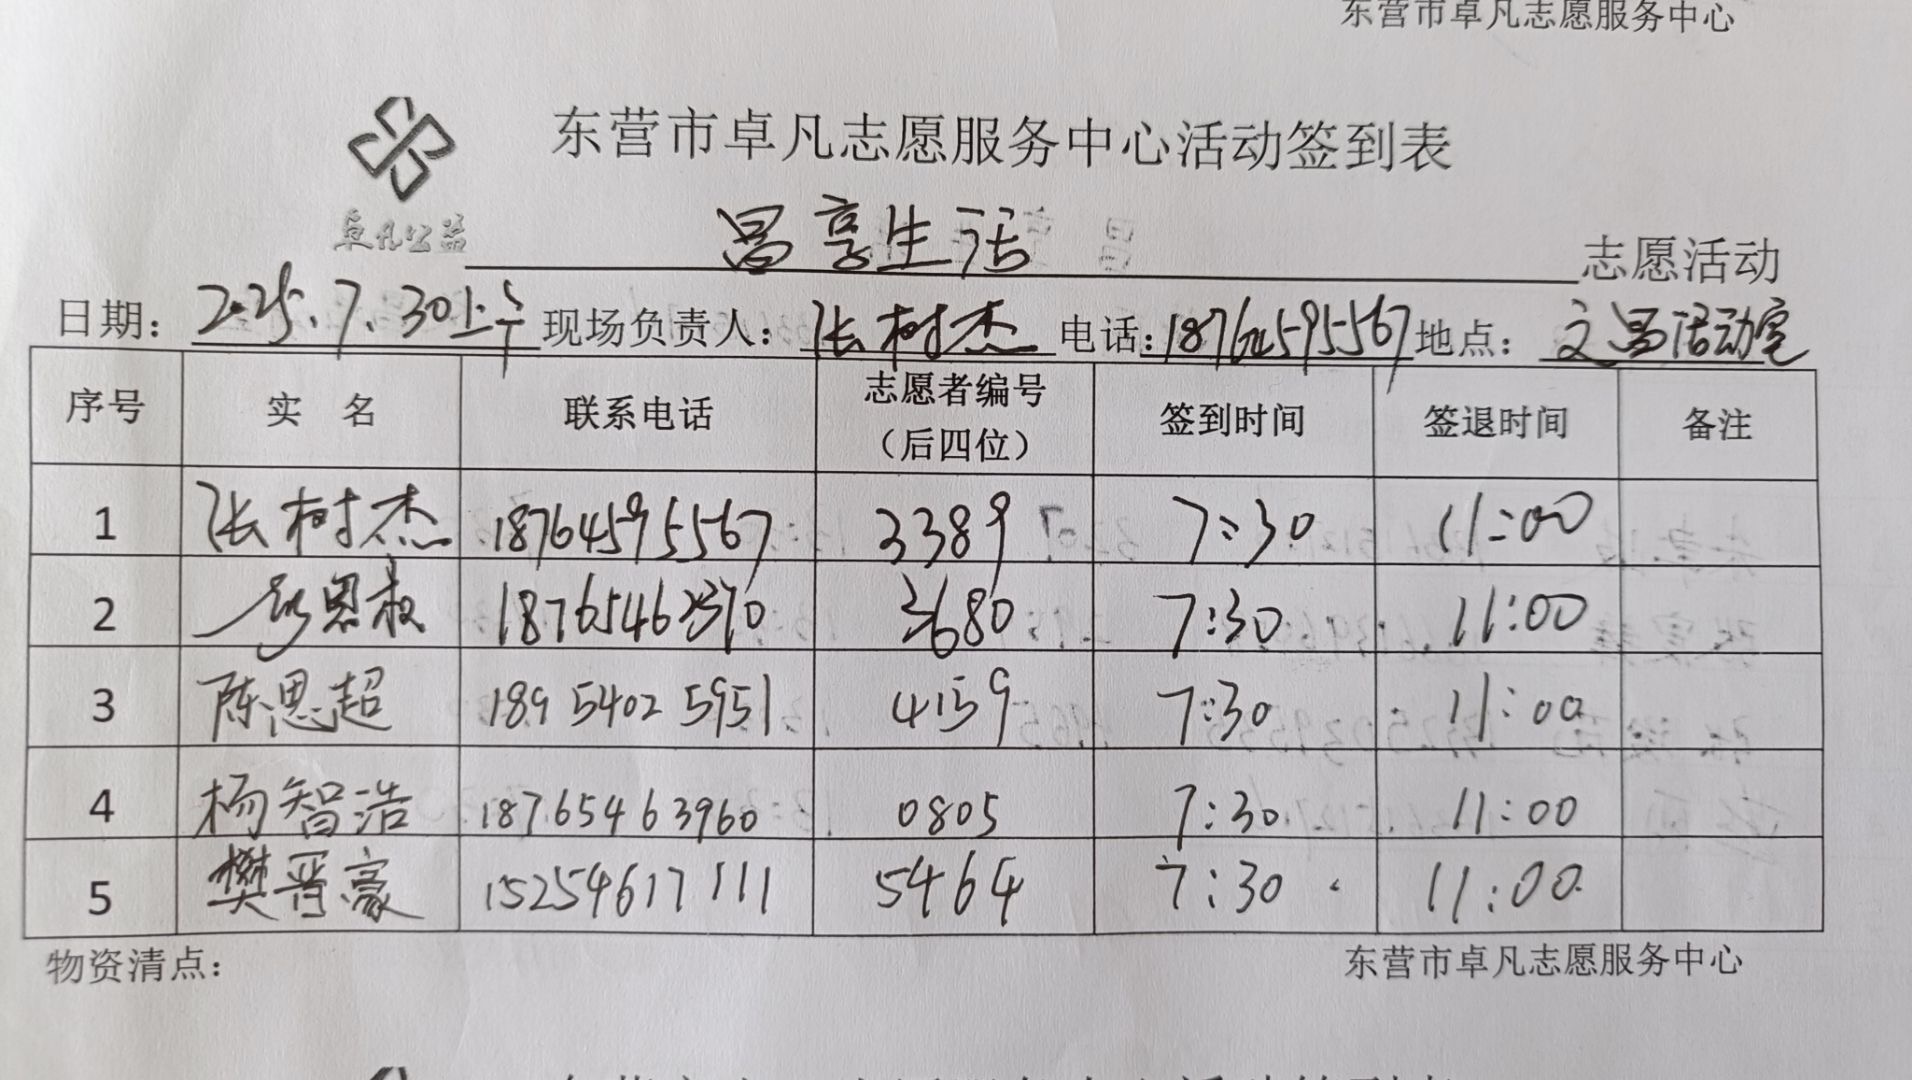 东营市卓凡志愿服务中心
东营市卓凡志愿服务中心活动签到表
卓凡公益
昌享生活 志愿活动
日期: 2025.7.30上午 现场负责人: 张树杰 电话: 18764595567 地点: 文昌活动室
序号 实 名 联系电话 志愿者编号（后四位） 签到时间 签退时间 备注
1 张树杰 18764595567 3389 7:30 11:00
2 恩 18765462370 3680 7:30 11:00
3 陈思超 189 5402 5951 4159 7:30 11:00
4 杨智浩 18765463960 0805 7:30 11:00
5 樊晋豪 15254617111 5464 7:30 11:00
物资清点: 东营市卓凡志愿服务中心